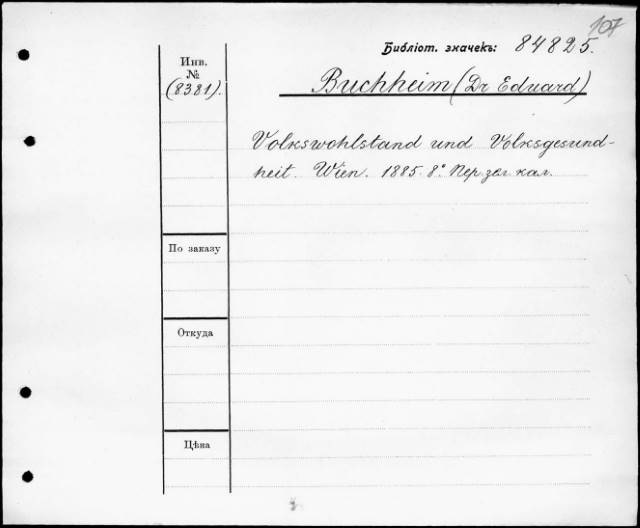 107
Библіот. значекъ: 84825.
Инв.
№
(8381).
Buchheim (Dr Eduard)
Volkswohlstand und Volksgesund-
heit. Wien. 1885. 8° Пер. зел. кал.
По заказу
Откуда
Цѣна